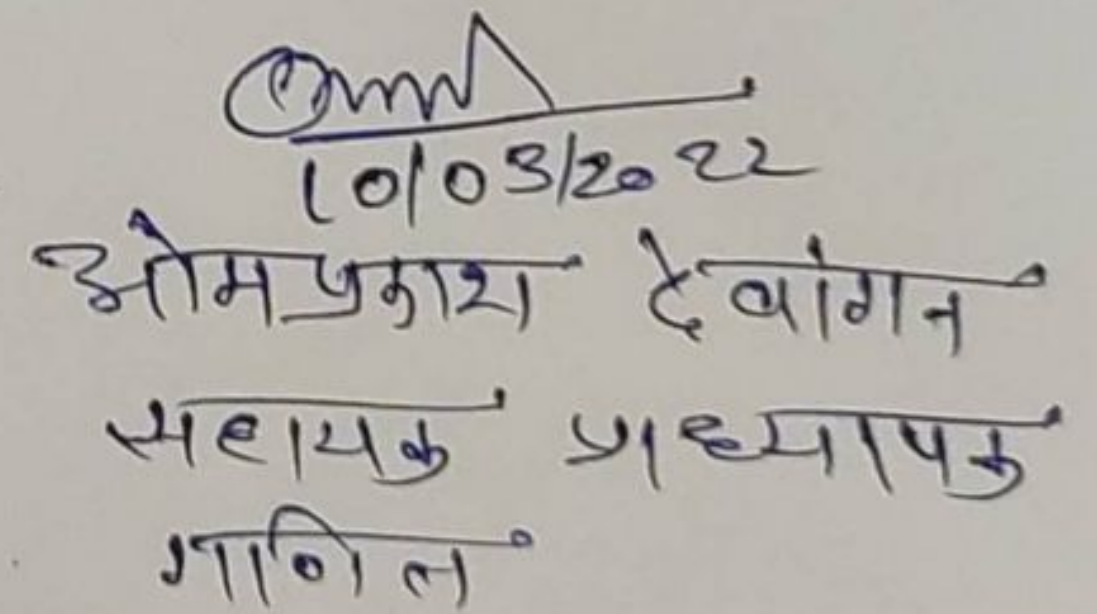 10/03/2022
ओमप्रकाश देवांगन
सहायक प्राध्यापक
गणित